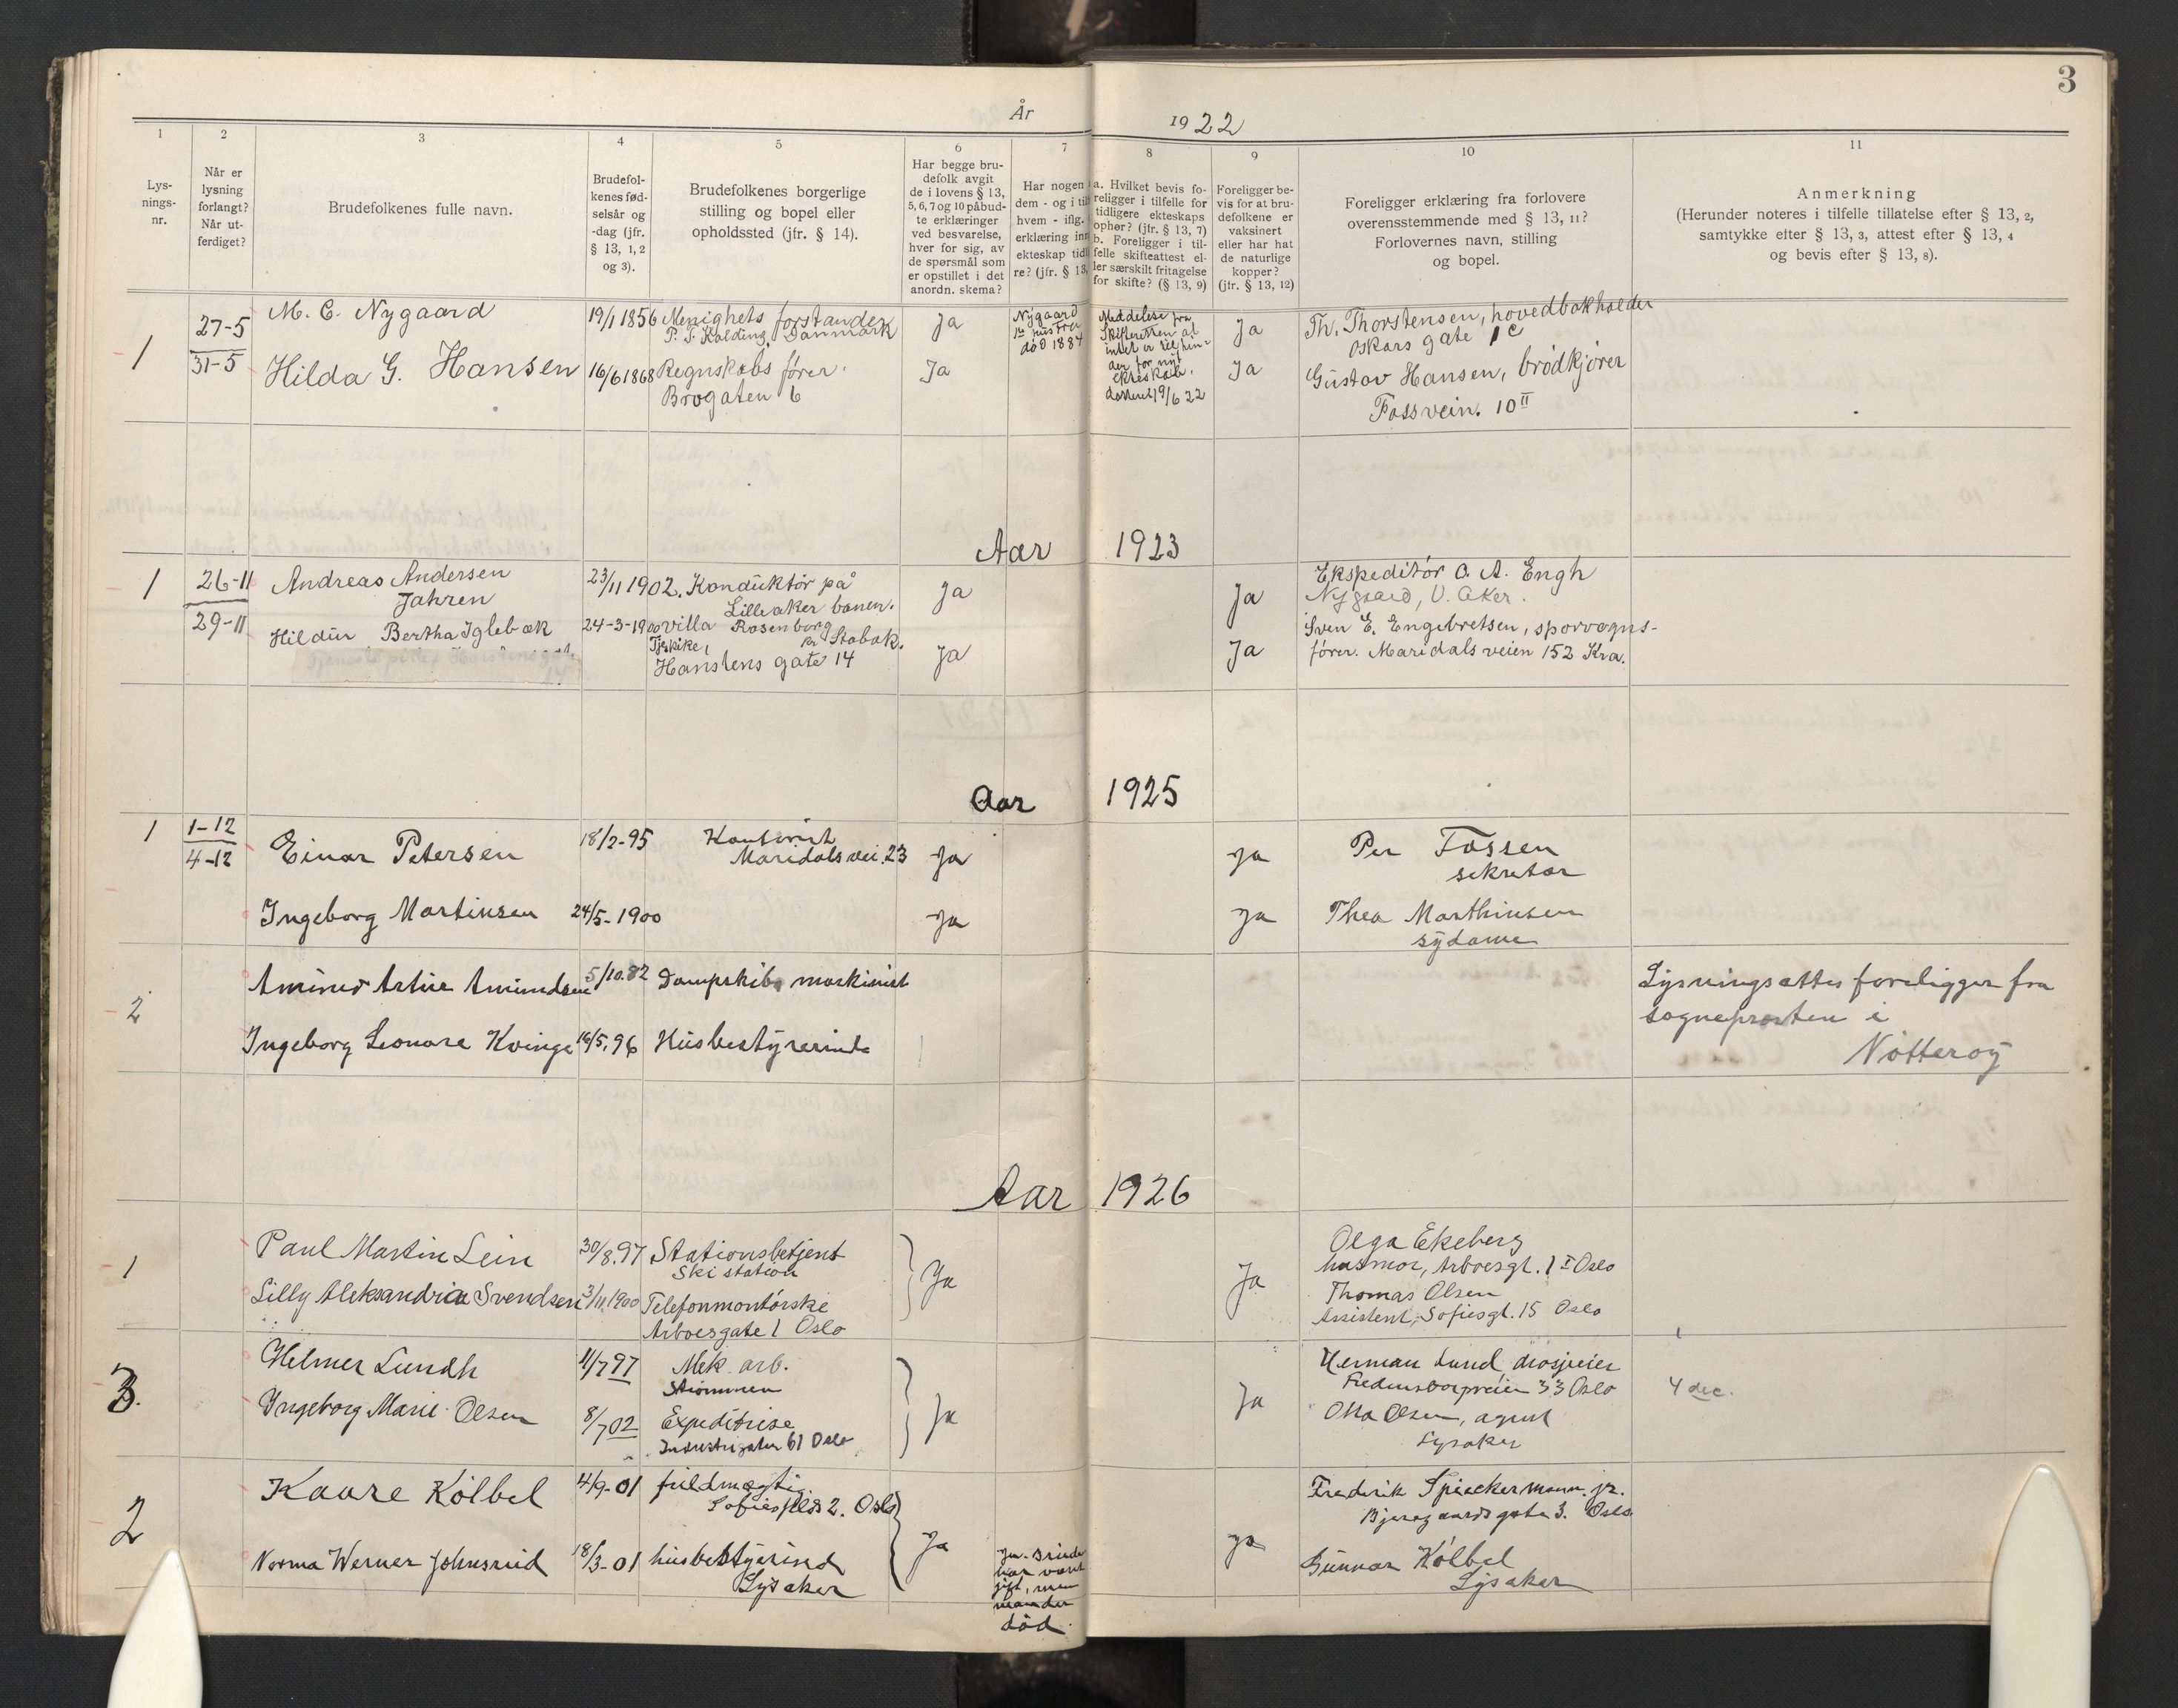 3
År 1922
1
2
3
4
5
6
7
8
9
10
11
Lys-
nings-
nr.
Når er
lysning
forlangt?
Når ut-
ferdiget?
Brudefolkenes fulle navn.
Brudefol-
kenes fød-
selsår og
-dag (jfr.
§ 13, 1, 2
og 3).
Brudefolkenes borgerlige
stilling og bopel eller
opholdssted (jfr. § 14).
Har begge bru-
defolk avgit
de i lovens § 13,
5, 6, 7 og 10 påbud-
te erklæringer
ved besvarelse,
hver for sig, av
de spørsmål som
er opstillet i det
anordn. skema?
Har nogen
dem - og i til
hvem - iflg.
erklæring inn
ekteskap tidl
re? (jfr. § 13,
a. Hvilket bevis fo-
religger i tilfelle for
tidligere ekteskaps
ophør? (jfr. § 13, 7)
b. Foreligger i til-
felle skifteattest el-
ler særskilt fritagelse
for skifte? (§ 13, 9)
Foreligger be-
vis for at bru-
defolkene er
vaksinert
eller har hat
de naturlige
kopper?
(jfr. § 13, 12)
Foreligger erklæring fra forlovere
overensstemmende med § 13, 11?
Forlovernes navn, stilling
og bopel.
Anmerkning
(Herunder noteres i tilfelle tillatelse efter § 13, 2,
samtykke efter § 13, 3, attest efter § 13, 4
og bevis efter § 13, 8).
1
27-5
31-5
M. C. Nygaard
19/1 1856
Menighets forstander
P. S. Kolding, Danmark
Ja
Nygaard
1ste hustru
død 1884
Meddelelse fra
Skifteretten at
intet er til hin-
der for nyt
ekteskab,
datteret 19/6 22
Ja
Th. Thorstensen, hovedbokholder
Oskars gate 1c
Hilda G. Hansen
16/6 1868
Regnskabs fører.
Brogaten 6
Ja
Ja
Gustav Hansen, brödkjører
Fossvein. 10 II
Aar 1923
1
26-11
29-11
Andreas Andersen
Jahren
23/11 1902.
Konduktör på
Lilleaker banen.
villa Rosenborg
pr Stabæk.
Ja
Ja
Ekspeditör O. A. Engh
Nygaard, V. Aker.
Hildur Bertha Iglebæk
24-3-1900
Hanstens gate 14
Ja
Ja
Sven E. Engebretsen, sporvogns-
fører. Maridalsveien 152 Kra.
Aar 1925
1
1-12
4-12
Einar Petersen
18/2-95
Kontorist
Maridalsvei. 23
Ja
Ja
Per Fossen
sekretær
Ingeborg Martinsen
24/5-1900
Ja
Ja
Thea Marthinsen
sydame
2
Amund Artur Amundsen
5/10.82
Dampskibs maskinist
Lysningsattes foreligger fra
sognepresten i
Nötteröy
Ingeborg Leonore Kvinge
19/5.96
Husbestyrerinde
Aar 1926
1
Paul Martin Lein
30/8.97
Stationsbetjent
Ski station
Ja
Ja
Olga Ekeberg
husmor, Arboesgt. 1 I Oslo
Lilly Aleksandria Svendsen
3/11.1900
Telefonmontørske
Arboesgate 1 Oslo
Thomas Olsen
Assistent, Sofiesgt. 15 Oslo
3.
Helmer Lundh
11/7 97
Mek. arb.
Strömmen
Ja
Ja
Herman Lund drosjeeier
Fredensborgveien 33 Oslo
4 dec.
Ingeborg Marie Olsen
8/7 02
Expeditrise
Industrigaten 61 Oslo
Otto Olsen, agent
Lysaker
2
Kaare Kölbel
4/9-01
fuldmægtig
Sofies plds 2. Oslo
Ja
Ja
Frederik Spieckermann. jr.
Bjeregaards gate 3. Oslo
Norma Werner Johnsrud
18/3-01
husbestyerind
Lysaker
Ja. Brude
har vært
gift, men
manden
död.
Gunnar Kölbel
Lysaker